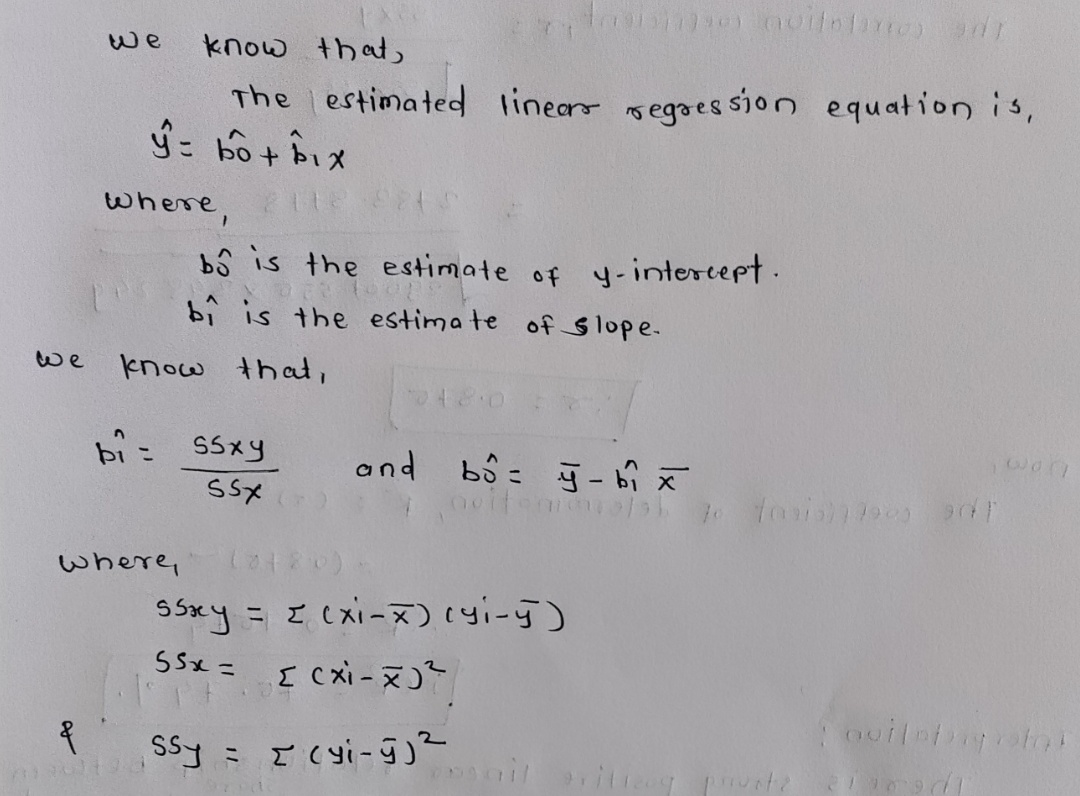 we know that,
The estimated linear regression equation is,
ŷ = b̂0 + b̂1x
where,
b̂0 is the estimate of y-intercept.
b̂1 is the estimate of slope.
we know that,
b̂1 = SSxy / SSx and b̂0 = ȳ - b̂1 x̄
where,
SSxy = Σ (xi-x̄) (yi-ȳ)
SSx = Σ (xi-x̄)²
& SSy = Σ (yi-ȳ)²